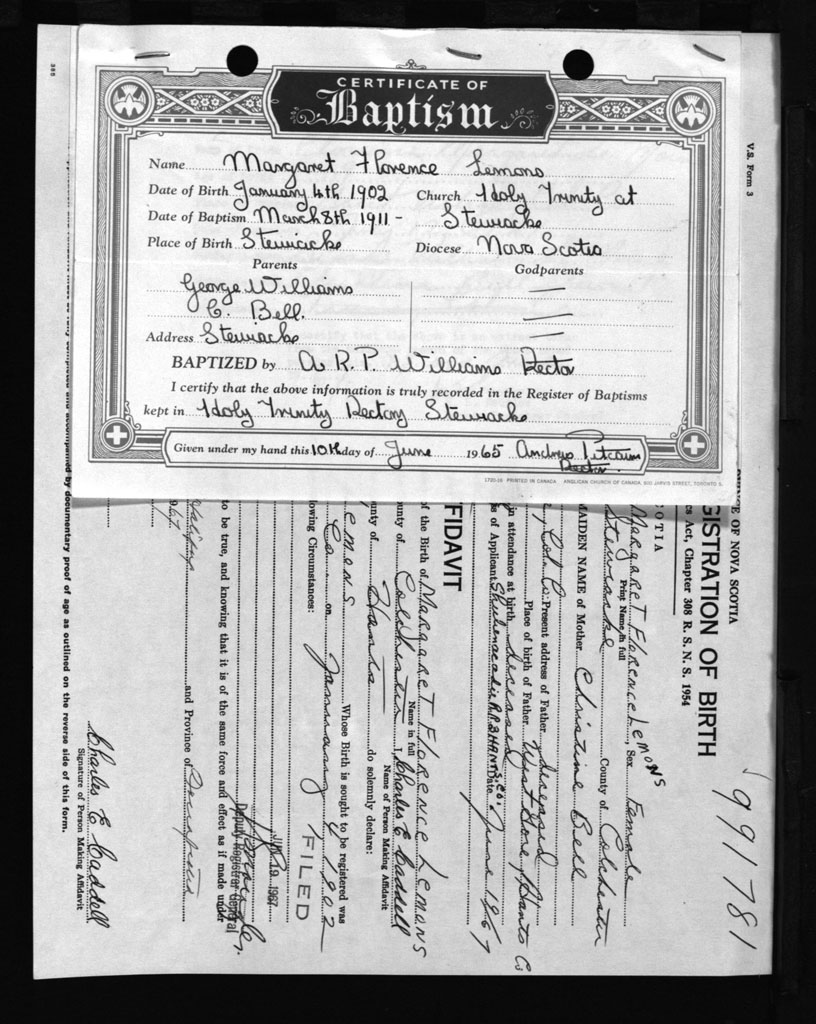 CERTIFICATE OF
Baptism
Name Margaret Florence Lemons
Date of Birth January 4th 1902 Church Holy Trinity at
Date of Baptism March 8th 1911 - Stewiacke
Place of Birth Stewiacke Diocese Nova Scotia
Parents Godparents
George Williams —
C. Bell. —
Address Stewiacke —
BAPTIZED by A R.P. Williams Rector
I certify that the above information is truly recorded in the Register of Baptisms
kept in Holy Trinity Rectory Stewiacke
Given under my hand this 10th day of June 1965 Andrew Pitcairn
Rector.
PRINTED IN CANADA ANGLICAN CHURCH OF CANADA, 600 JARVIS STREET, TORONTO 5.
386
V.S. Form 3
991781
OF NOVA SCOTIA
GISTRATION OF BIRTH
es Act, Chapter 308 R. S. N. S. 1954
OTIA
Margaret Florence Lemons, Sex Female
Print Name in full
Stewiacke County of Colchester
MAIDEN NAME of Mother Christine Bell
Col. Co. Present address of Father deceased
Place of birth of Father West Gore, Hants Co
in attendance at birth deceased
s of Applicant Shubenacadie R.R.3 HANTS. CO. Date June 1967
FIDAVIT
f the Birth of MARGARET FLORENCE LEMONS
Name in full
ounty of Colchester I, Charles E Caddell
Name of Person Making Affidavit
unty of Hants do solemnly declare:
emons Whose Birth is sought to be registered was
Co. on January 4 1902
lowing Circumstances:
FILED
JUN 19 1967
Deputy Registrar General
to be true, and knowing that it is of the same force and effect as if made under
Halifax and Province of Nova Scotia
967
Charles E Caddell
Signature of Person Making Affidavit
accompanied by documentary proof of age as outlined on the reverse side of this form.